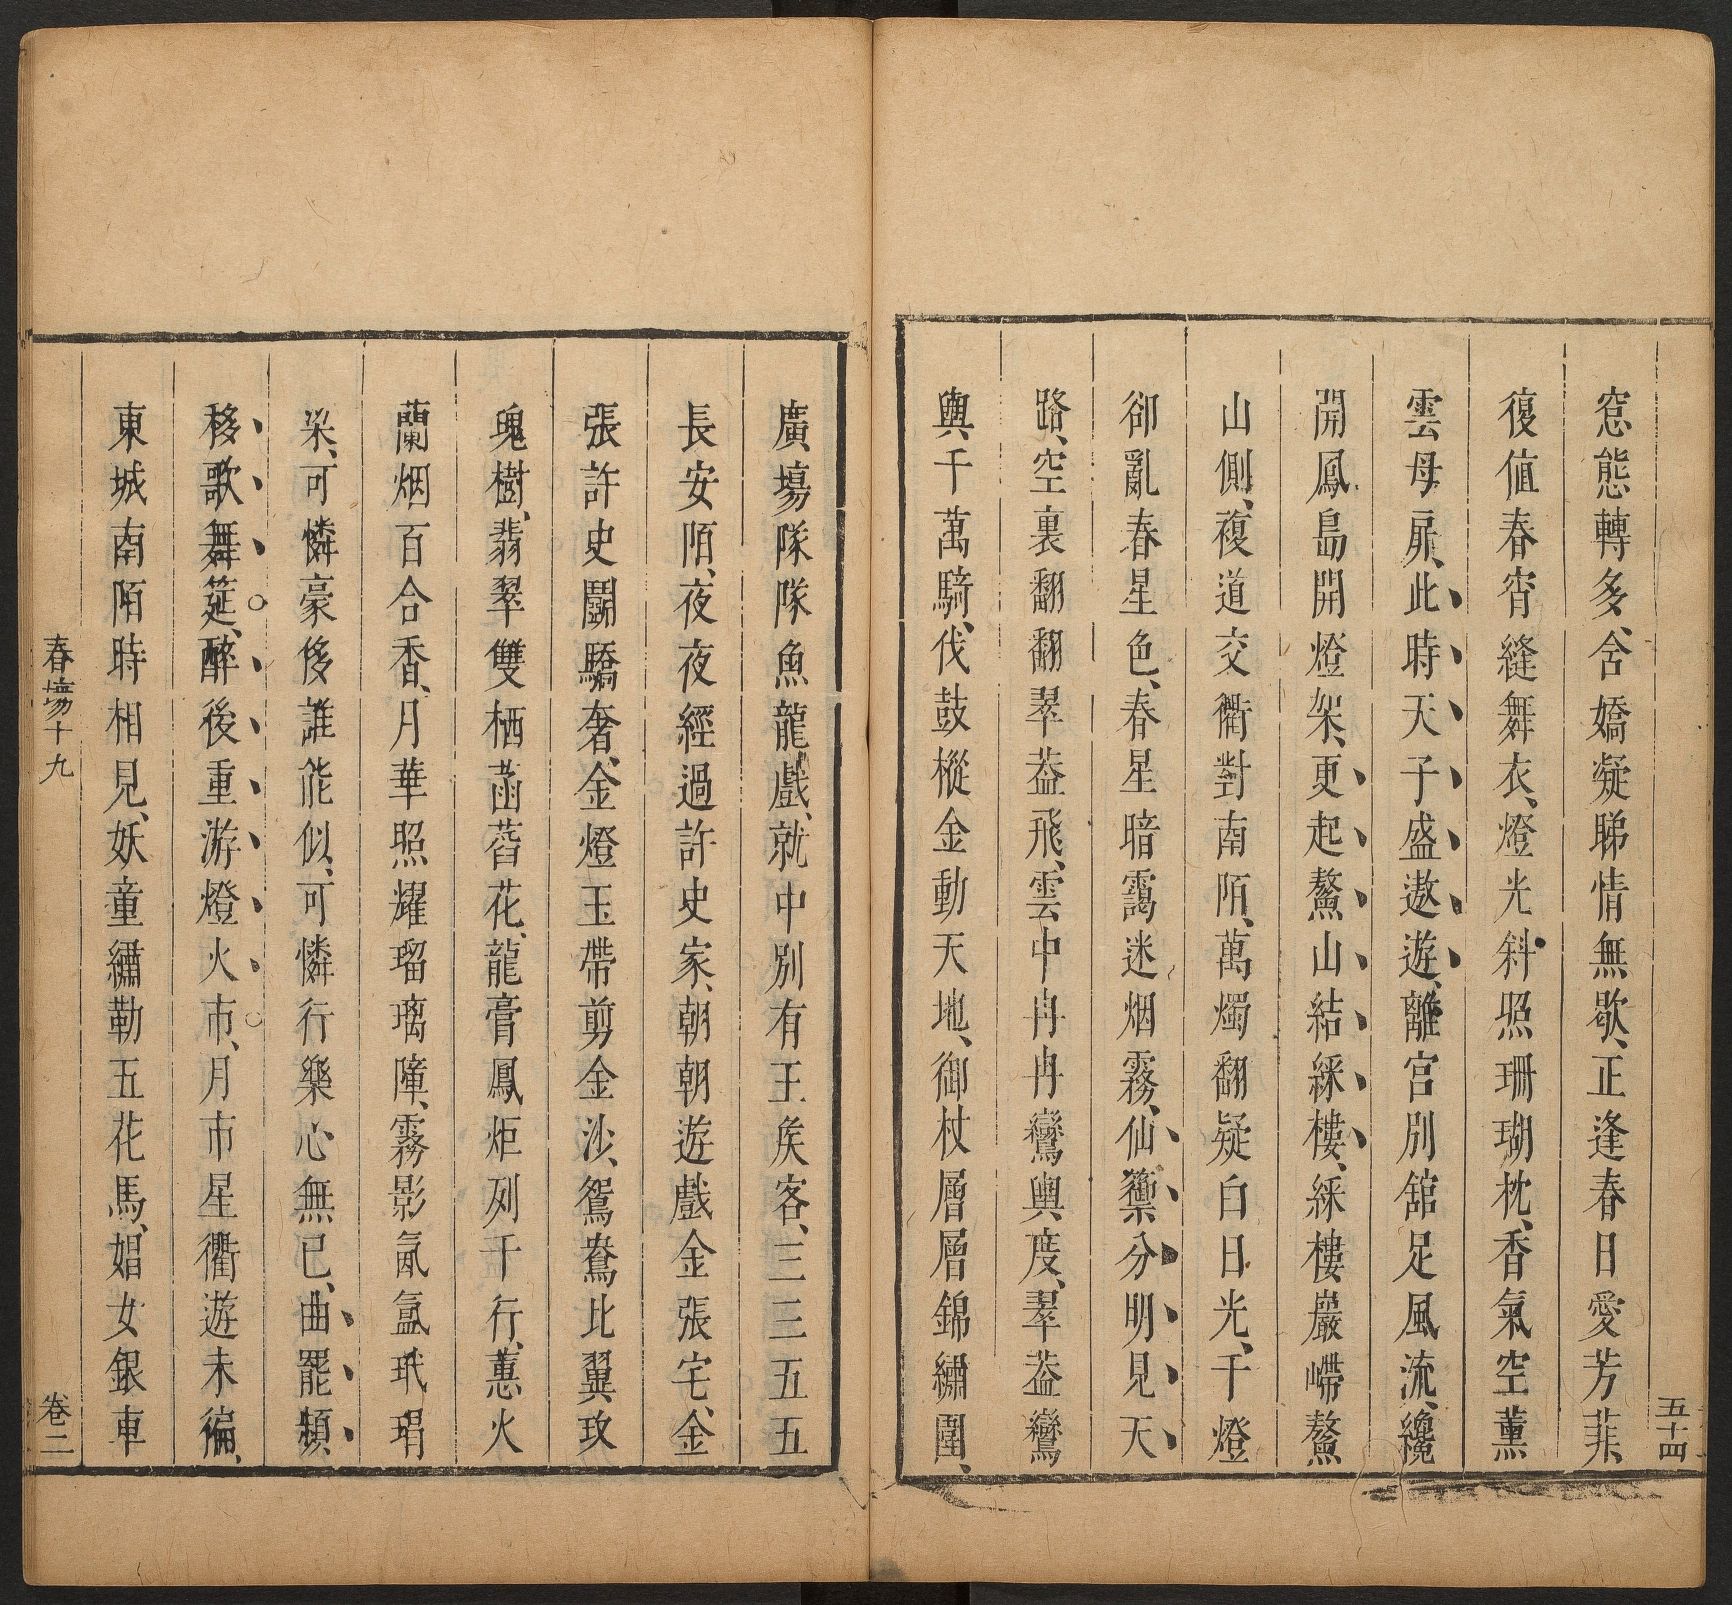 窓態轉多、含嬌凝睇情無歇、正逢春日愛芳菲、
復値春宵縫舞衣、燈光斜照珊瑚枕、香氣空薰
雲母扉、此時天子盛遨遊、離宮別舘足風流、纔
開鳳島開燈架、更起鰲山結綵樓、綵樓巖嵽鰲
山側、複道交衢對南陌、萬燭翻疑白日光、千燈
卻亂春星色、春星暗靄迷烟霧、仙籞分明見天
路、空裏翻翻翠葢飛、雲中冉冉鸞輿度、翠葢鸞
輿千萬騎、伐鼓樅金動天地、御杖層層錦繡圍、
五十四
廣塲隊隊魚龍戲、就中別有王侯客、三三五五
長安陌、夜夜經過許史家、朝朝遊戲金張宅、金
張許史鬬驕奢、金燈玉帶剪金沙、鴛鴦比翼玫
瑰樹、翡翠雙栖菡萏花、龍膏鳳炬列千行、蕙火
蘭烟百合香、月華照耀瑠璃障、霧影氤氳玳瑁
梁、可憐豪侈誰能似、可憐行樂心無已、曲罷頻
移歌舞筵、醉後重游燈火市、月市星衢遊未徧、
東城南陌時相見、妖童繡勒五花馬、娼女銀車
春塲十九
卷二